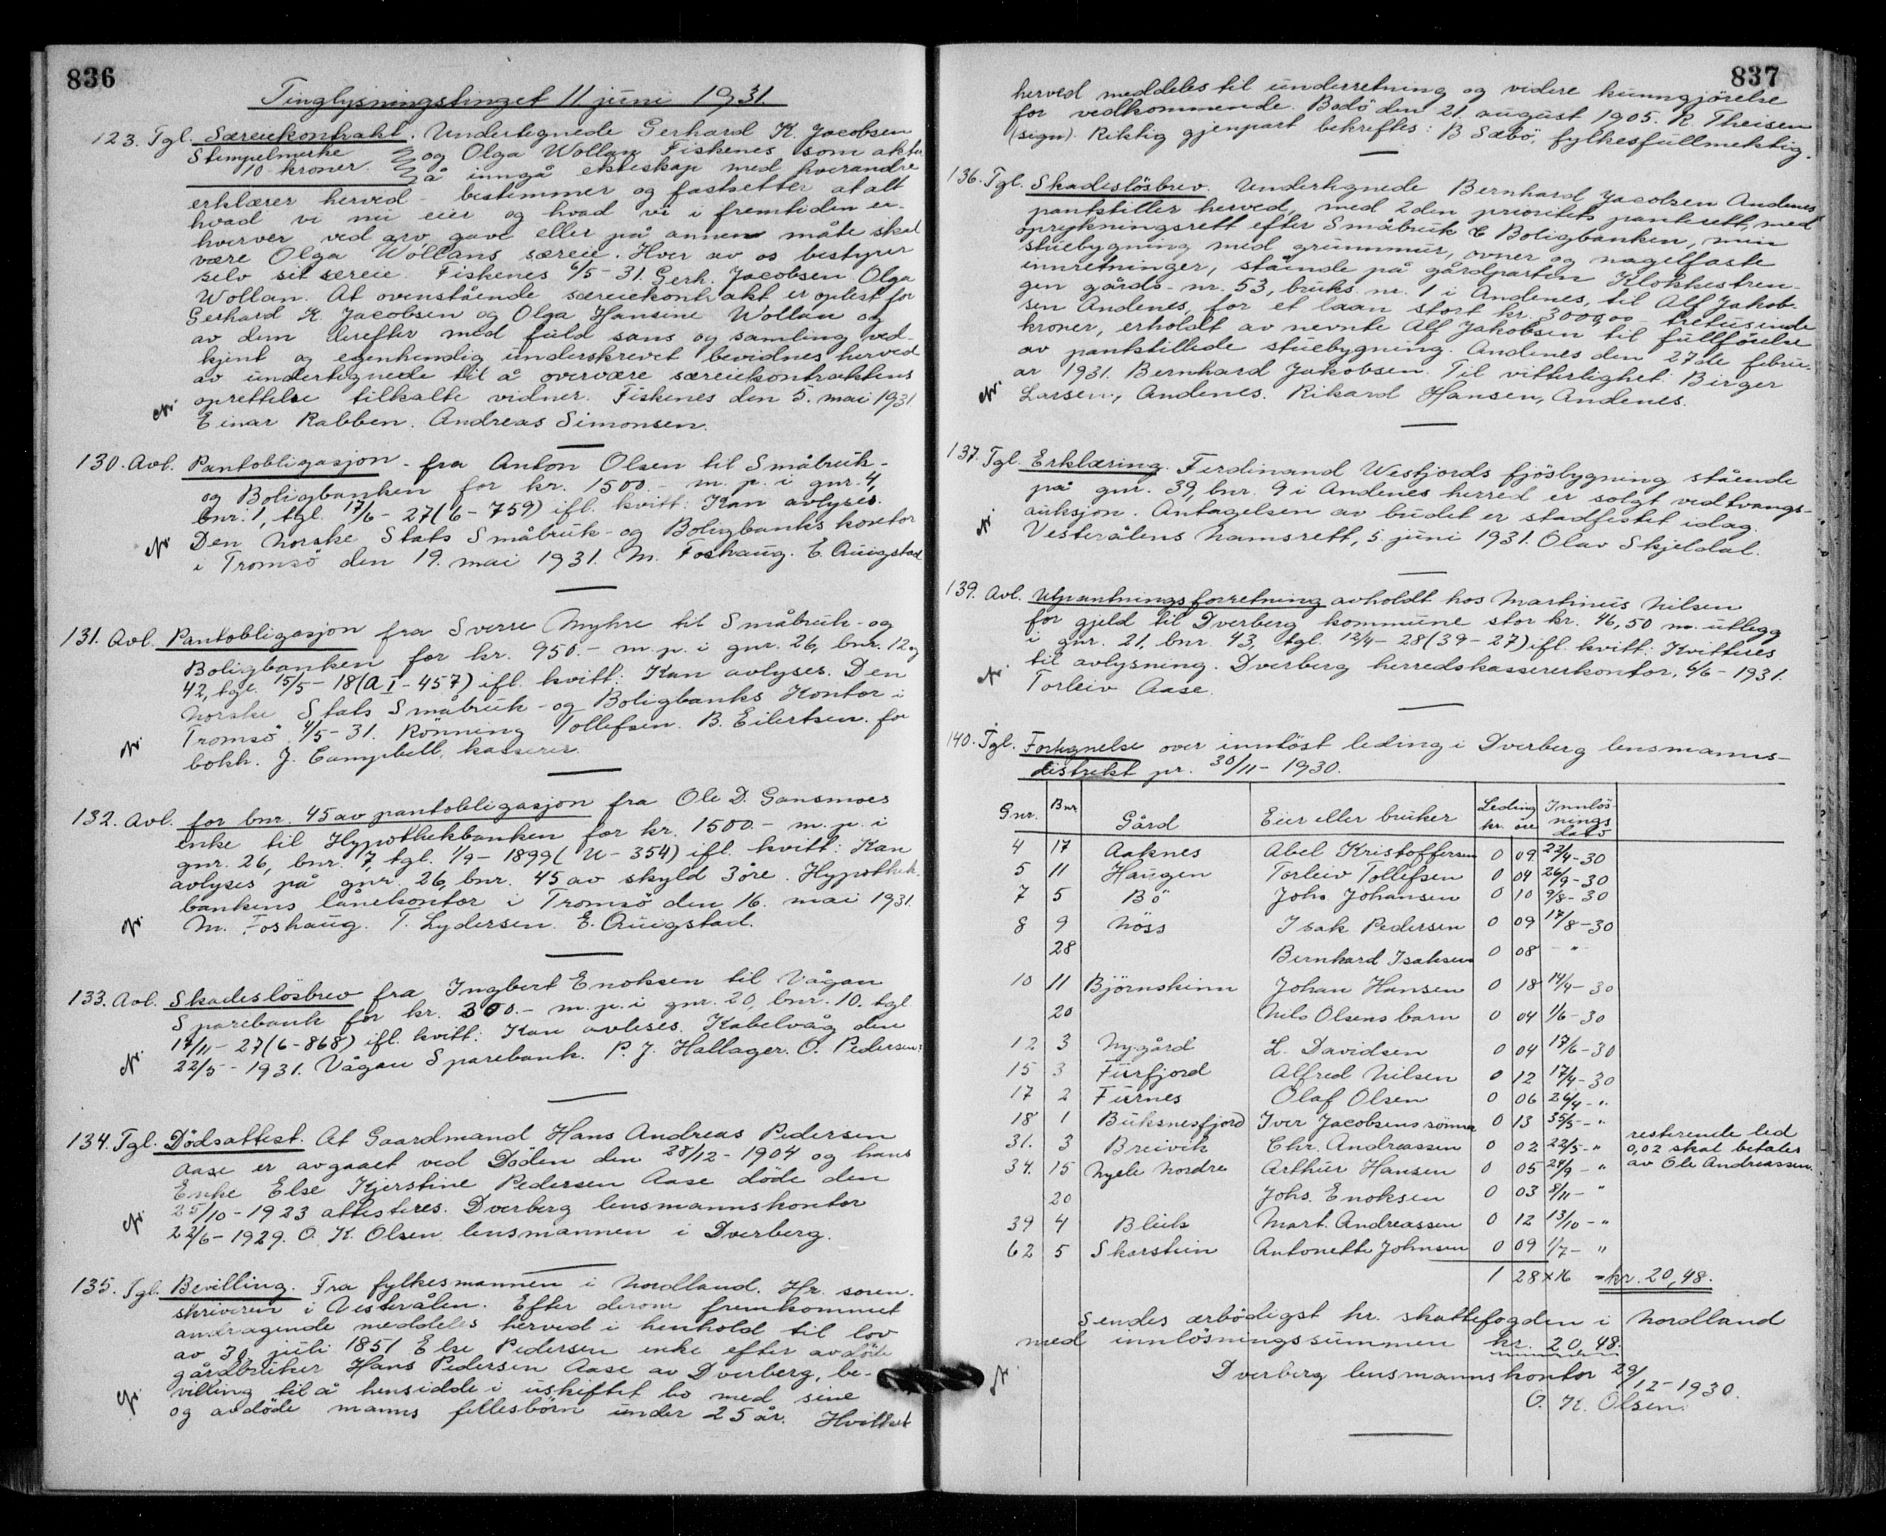 836
Tinglysningstinget 11 juni 1931
123. Tgl. Særeiekontrakt. Undertegnede Gerhard K. Jacobsen
Stempelmerke og Olga Wollan Fiskenes som akter
10 kroner. å inngå ekteskap med hverandre
erklærer herved - bestimmer og fastsetter at alt
hvad vi nu eier og hvad vi i fremtiden er-
hverver ved arv gave eller på annen måte skal
være Olga Wollans særeie. Hver av os bestyrer
selv sit særeie. Fiskenes 6/5-31. Gerh. Jacobsen Olga
Wollan. At ovenstående særeiekontrakt er oplest for
Gerhard K. Jacobsen og Olga Hansine Wollan og
av dem derefter med fuld sans og samling ved-
kjent og egenhendig underskrevet bevidnes herved
av undertegnede til å overvære særeiekontraktens
oprettelse tilkalte vidner. Fiskenes den 5. mai 1931
Einar Rabben. Andreas Simonsen.
130. Avl. Pantobligasjon - fra Anton Olsen til Småbruk-
og Boligbanken for kr. 1500.- m. p. i gnr. 4,
bnr. 1, tgl. 17/6-27 (6-759) ifl. kvitt: Kan avlyses.
Den Norske Stats Småbruk- og Boligbanks kontor
i Tromsö den 19. mai 1931. M. Foshaug. E. Quigstad
131. Avl. Pantobligasjon fra Sverre Myhre til Småbruk- og
Boligbanken for kr. 950.- m. p. i gnr. 26, bnr. 12 og
42, tgl. 15/5-18 (A I-457) ifl. kvitt: Kan avlyses. Den
Norske Stats Småbruk- og Boligbanks Kontor i
Tromsö 4/5-31. Rönning Tollefsen. B. Eilertsen. for
bokh. J. Campbell, kasserer.
132. Avl. for bnr. 45 av pantobligasjon fra Ole D. Gansmoes
enke til Hypothekbanken for kr. 1500.- m. p. i
gnr. 26, bnr. 7, tgl. 1/9-1899 (U-354) ifl. kvitt: Kan
avlyses på gnr. 26, bnr. 45 av skyld 3 öre. Hypothek-
bankens lånekontor i Tromsö den 16. mai 1931.
M. Foshaug. T. Lydersen. E. Quigstad.
133. Avl. Skadeslösbrev fra Ingbert Enoksen til Vågan
Sparebank for kr. 300.- m. p. i gnr. 20, bnr. 10. tgl
17/11-27 (6-868) ifl. kvitt: Kan avleses. Kabelvåg den
22/5-1931. Vågan Sparebank. P. J. Hallager. O. Pedersen.
134. Tgl. Dödsattest. At Gaardmand Hans Andreas Pedersen
Aase er avgaaet ved Döden den 28/12-1904 og hans
Enke Else Kjerstine Pedersen Aase döde den
25/10-1923 attesteres. Dverberg lensmannskontor
22/6-1929. O. K. Olsen lensmannen i Dverberg.
135. Tgl. Bevilling. Fra fylkesmannen i Nordland. Hr. soren-
skriveren i Vesterålen. Efter derom fremkommet
andragende meddeles herved i henhold til lov
av 30. juli 1851 Else Pedersen enke efter avdöde
gårdbruker Hans Pedersen Aase av Dverberg, be-
villing til å hensidde i uskiftet bo med sine
og avdöde manns fellesbörn under 25 år. Hvilket
837
herved meddeles til underretning og videre kunngjörelse
for vedkommende. Bodö den 21. august 1905. R. Theisen
(sign). Riktig gjenpart bekreftes: B Sæbö, fylkesfullmektig.
136. Tgl. Skadeslösbrev. Undertegnede Bernhard Jacobsen Andenes
pantstiller herved, med 2den prioritets pantrett, med
oprykningsrett efter Småbruk & Boligbanken, min
stuebygning med grunnmur, ovner og nagelfaste
innretninger, stående på gårdparten Klokkestren-
gen gårds-nr. 53, bruks nr. 1 i Andenes, til Alf Jakob-
sen Andenes, for et laan stort kr. 3000,00 tretusende
kroner, erholdt av nevnte Alf Jakobsen til fullförelse
av pantstillede stuebygning. Andenes den 27de febru-
ar 1931. Bernhard Jakobsen. Til vitterlighet: Birger
Larsen, Andenes. Rikard Hansen, Andenes.
137. Tgl. Erklæring. Ferdinand Vestfjords fjösbygning stående
på gnr. 39, bnr. 9 i Andenes herred er solgt ved tvangs-
auksjon. Antagelsen av budet er stadfestet idag.
Vesterålens Namsrett, 5. juni 1931. Olav Skjeldal.
139. Avl. Utpantningsforretning avholdt hos Martinus Nilsen
for gjeld til Dverberg kommune stor kr. 46,50 m. utlegg
i gnr. 21, bnr 43, tgl. 12/4-28 (39-27) ifl. kvitt: Kvitteres
til avlysning. Dverberg herredskassererkontor, 6/6-1931.
Torleiv Aase.
140. Tgl. Fortegnelse over innlöst leding i Dverberg lensmanns-
distrikt pr. 30/11-1930.
Gnr. Bnr Gård Eier eller bruker Leding kr. öre Innlös-nings dato
4 17 Aaknes Abel Kristoffersen 0 09 22/4-30
5 11 Haugen Torleiv Tollefsen 0 04 26/9-30
7 5 Bö Johs Johansen 0 10 9/8-30
8 9 Nöss Isak Pedersen 0 09 17/8-30
28 Bernhard Isaksen 0 08 - "
10 11 Björnskinn Johan Hansen 0 18 14/4-30
20 Nils Olsens barn 0 04 1/6-30
12 3 Nygård L. Davidsen 0 04 17/6-30
15 3 Furfjord Alfred Nilsen 0 12 17/4-30
17 2 Furnes Olaf Olsen 0 06 26/4- "
18 1 Buksnesfjord Iver Jacobsens sönner 0 13 35/5- "
31. 3 Breivik Chr. Andreassen 0 02 22/5- " resterende led 0,02 skal betales av Ole Andreassen.
34. 15 Nyele Nordre Arthur Hansen 0 05 24/9- "
20 Johs. Enoksen 0 03 8/11- "
39 4 Bleik Mart. Andreassen 0 12 13/10- "
62 5 Skarstein Antonette Johnsen 0 09 1/7- "
1 28 x 16 = kr. 20,48.
Sendes ærbödigst hr. skattefogden i Nordland
med innlösningssummen kr. 20,48.
Dverberg lensmannskontor 29/12-1930.
O. K. Olsen.